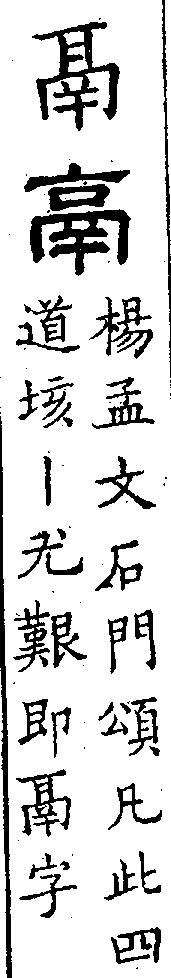 鬲鬲
楊孟文石門頌凡此四
道垓丨尤艱即鬲字